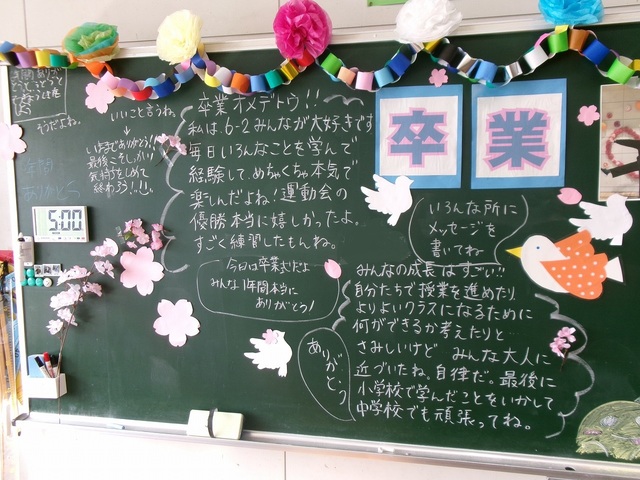 いいこと言うね。
↓
いままでありがとう!!
最後こそしっかり
気持ちをこめて
終わろう!!
そうだよね。
ありがとう
5:00
卒業オメデトウ!!
私は、6-2みんなが大好きです
毎日いろんなことを学んで
経験して、めちゃくちゃ本気で
楽しんだよね!運動会の
優勝本当に嬉しかったよ。
すごく練習したもんね。
今日は卒業式だよ
みんな1年間本当に
ありがとう!
卒業
いろんな所に
メッセージを
書いてね
みんなの成長はすごい!!
自分たちで授業を進めたり、
よりよいクラスになるために
何ができるか考えたりと
さみしいけど みんな大人に
近づいたね。自律だ。最後に
小学校で学んだことをいかして
中学校でも頑張ってね。
ありがとう